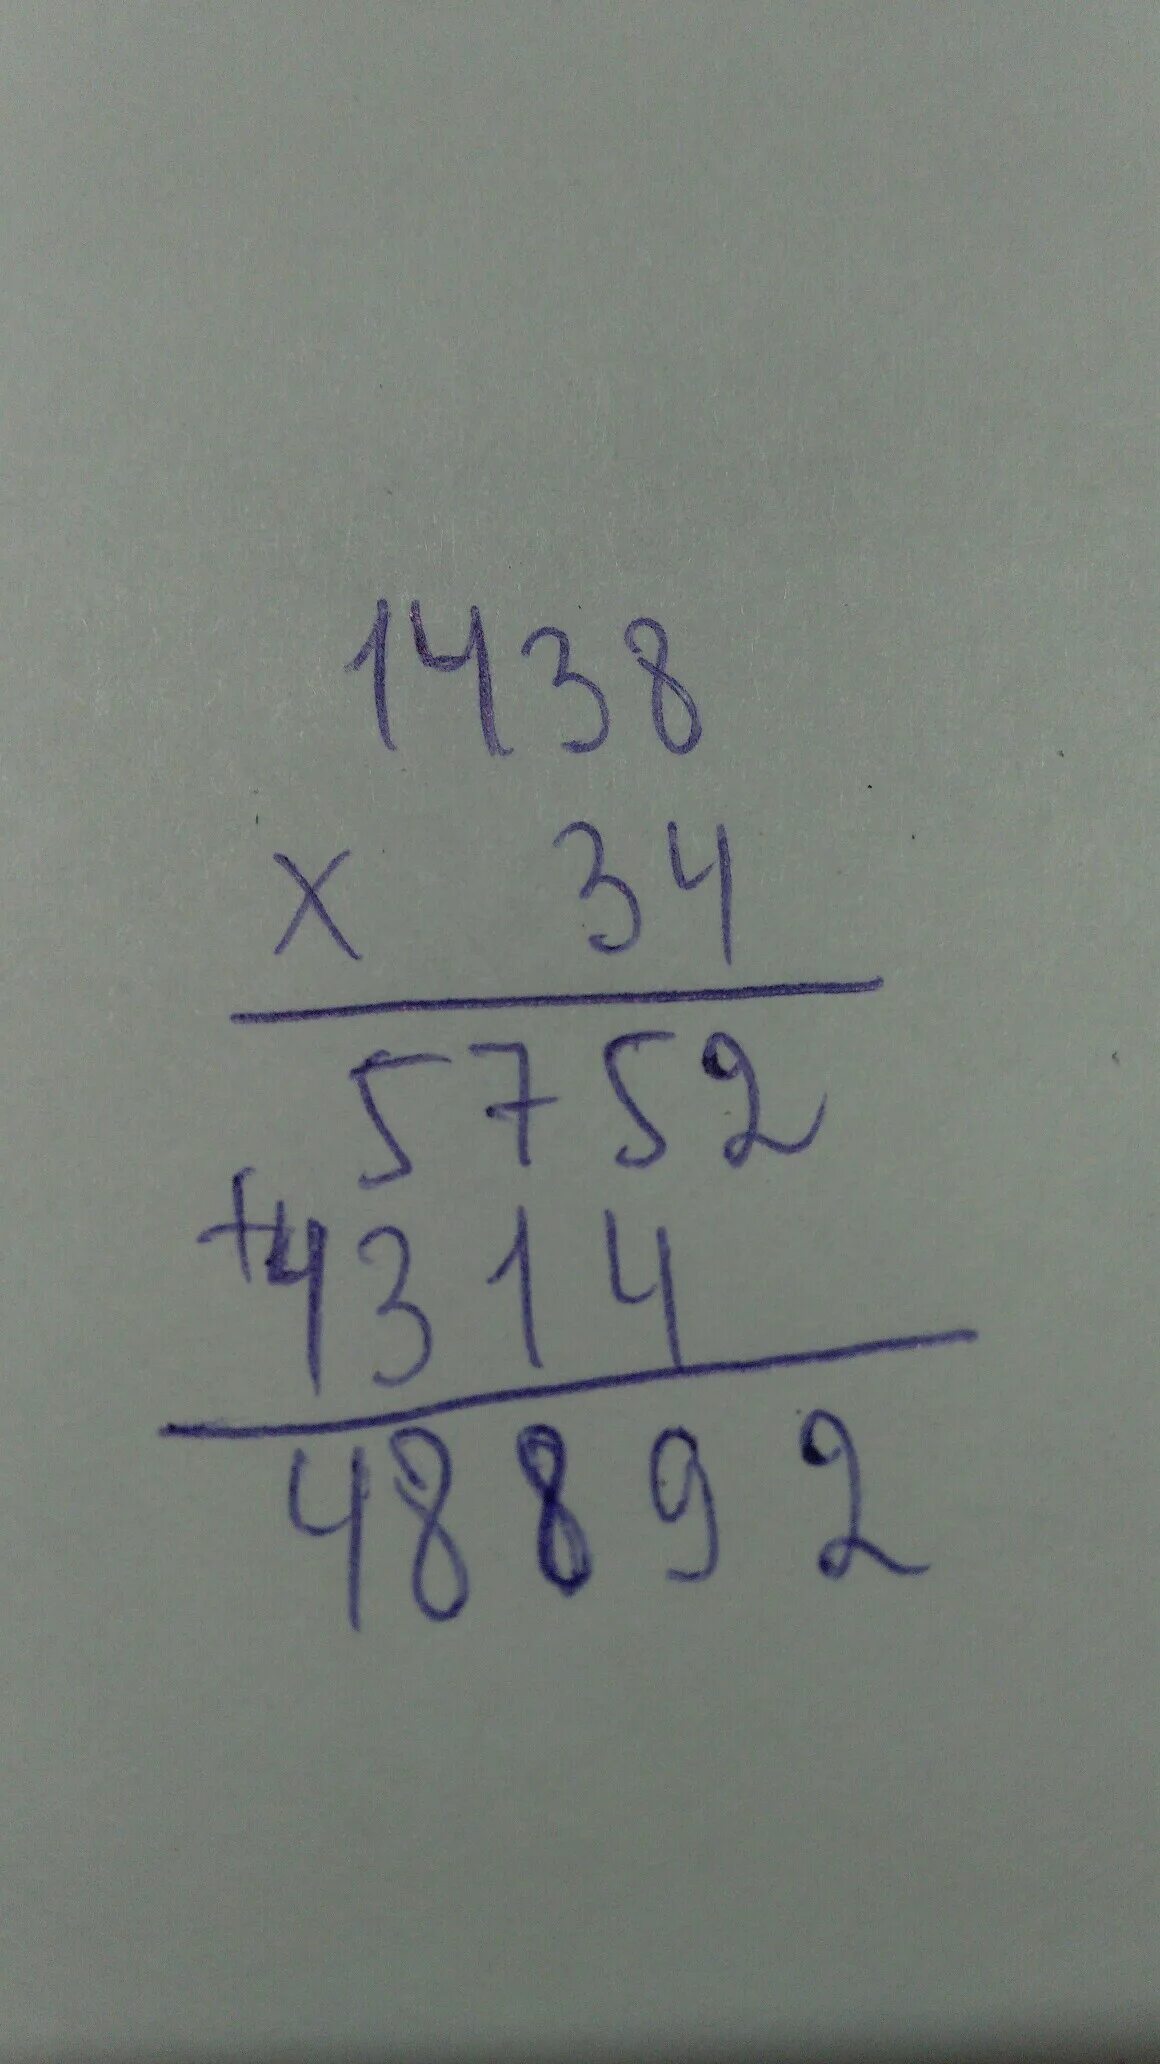 1438
x 34
5752
+4314
48892